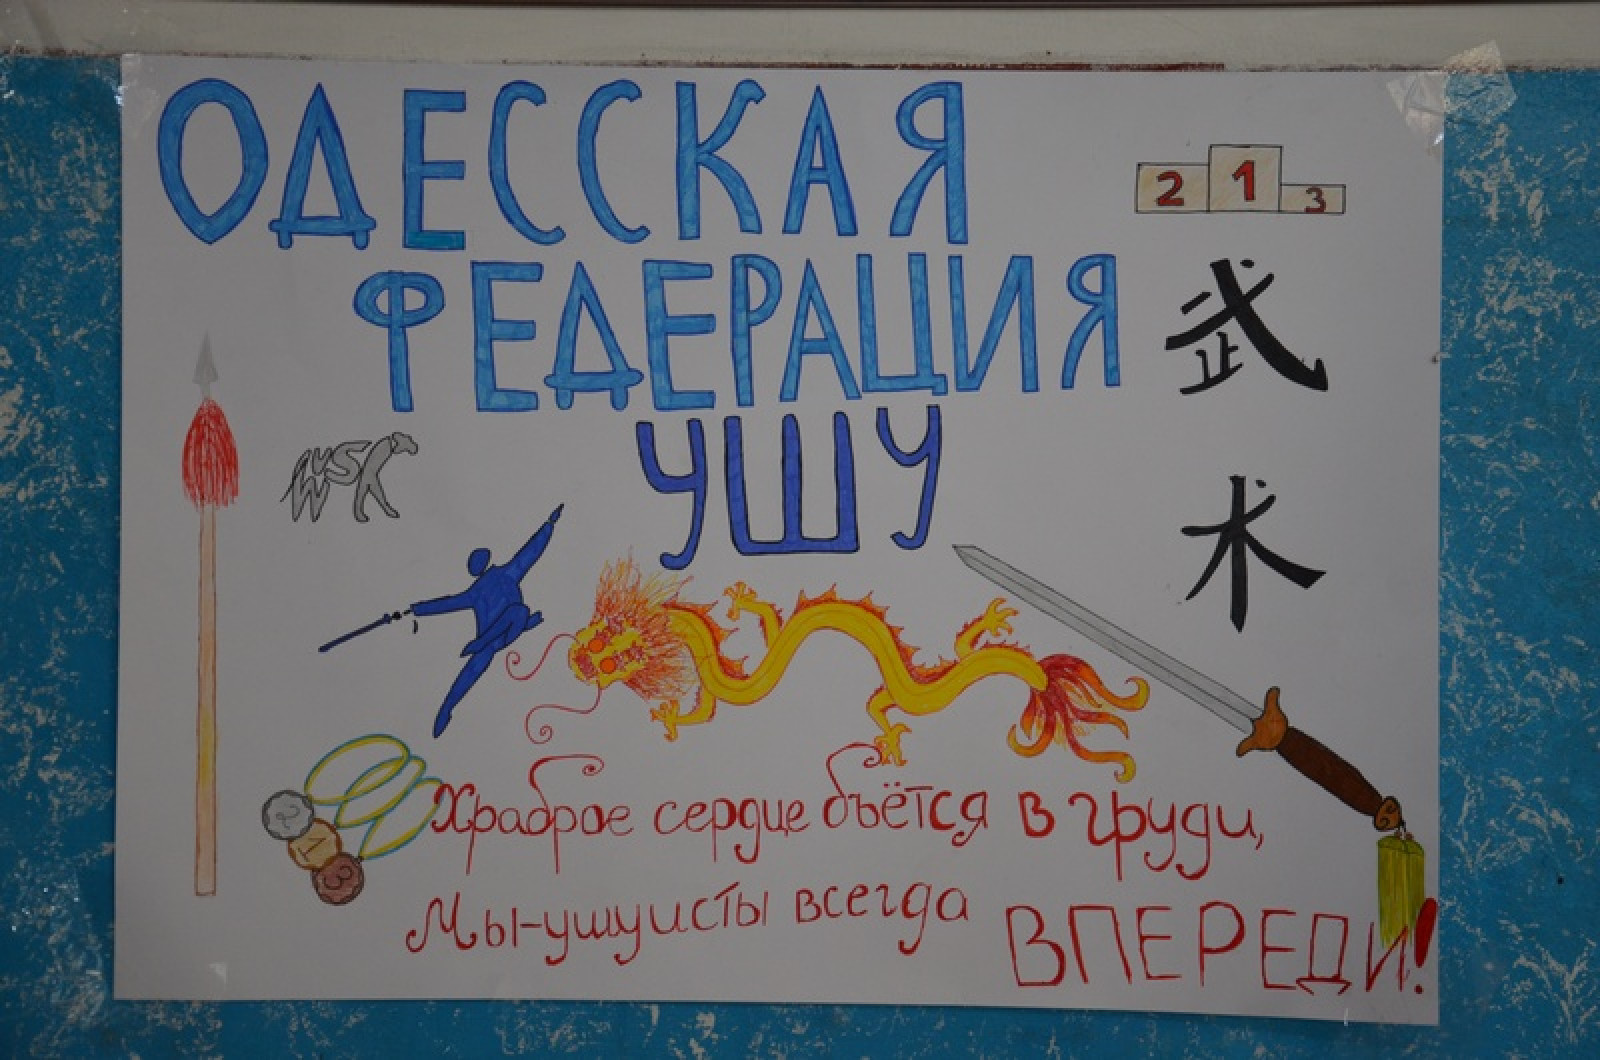 ОДЕССКАЯ
ФЕДЕРАЦИЯ
УШУ
2 1 3
武
术
WUSK
2
1
3
Храброе сердце бьётся в груди,
Мы-ушуисты всегда ВПЕРЕДИ!